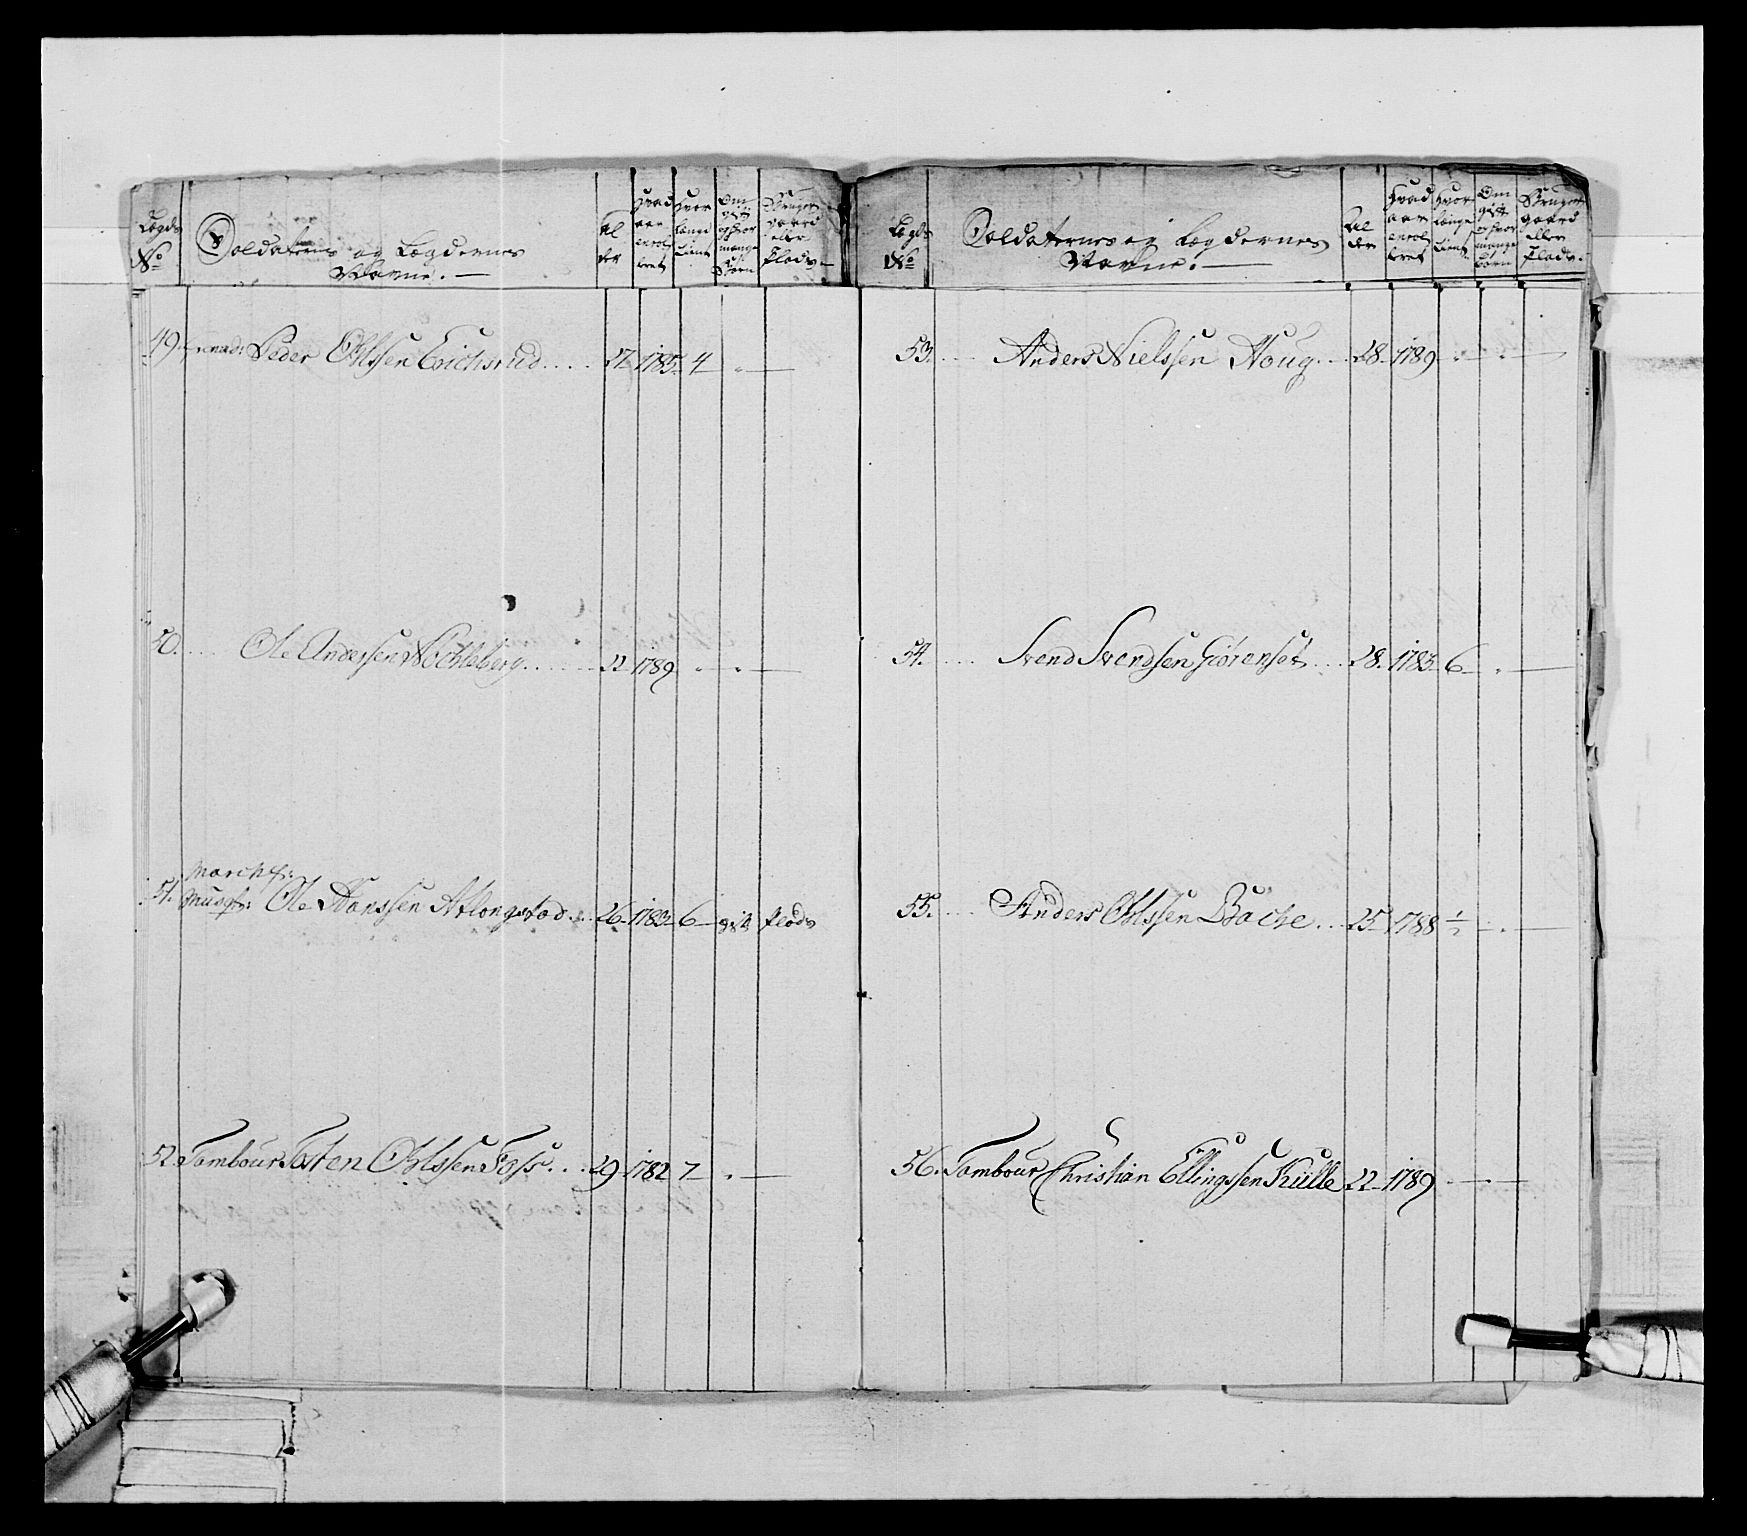 Lægds No
Soldaternes og Lægdernes Navne.
Al der
Hvad aar enrol leret
Hvor længe tient
Om gift og hvor mange Børn
Bruger gaard eller Plads
49. Grenad: Peder Ohlssen Erichsrud..... 27. 1785. 4 „ —
50. .... Ole Anderssen Nochleberg...... 22 1789 „ „ —
March f:
51. Musqt: Ole Hanssen Aslongstad... 26. 1783. 6 gift Plads
52. Tambour Tosten Ohlssen Foss... 29. 1782 7 „ —
Lægds No
Soldaternes og Lægdernes Navne.
Al der
Hvad aar enrol leret
Hvor længe tient
Om gift og hvor mange børn
Bruger gaard eller Plads
53. .... Anders Nielssen Houg... 28. 1789 „ „ —
54. .... Svend Svendsen Giörenset.... 28. 1783. 6 „ —
55. .... Anders Ohlssen Bache... 25 1788 1/2 „ —
56. Tambour Christian Ellingssen Kulle 22 1789 — —